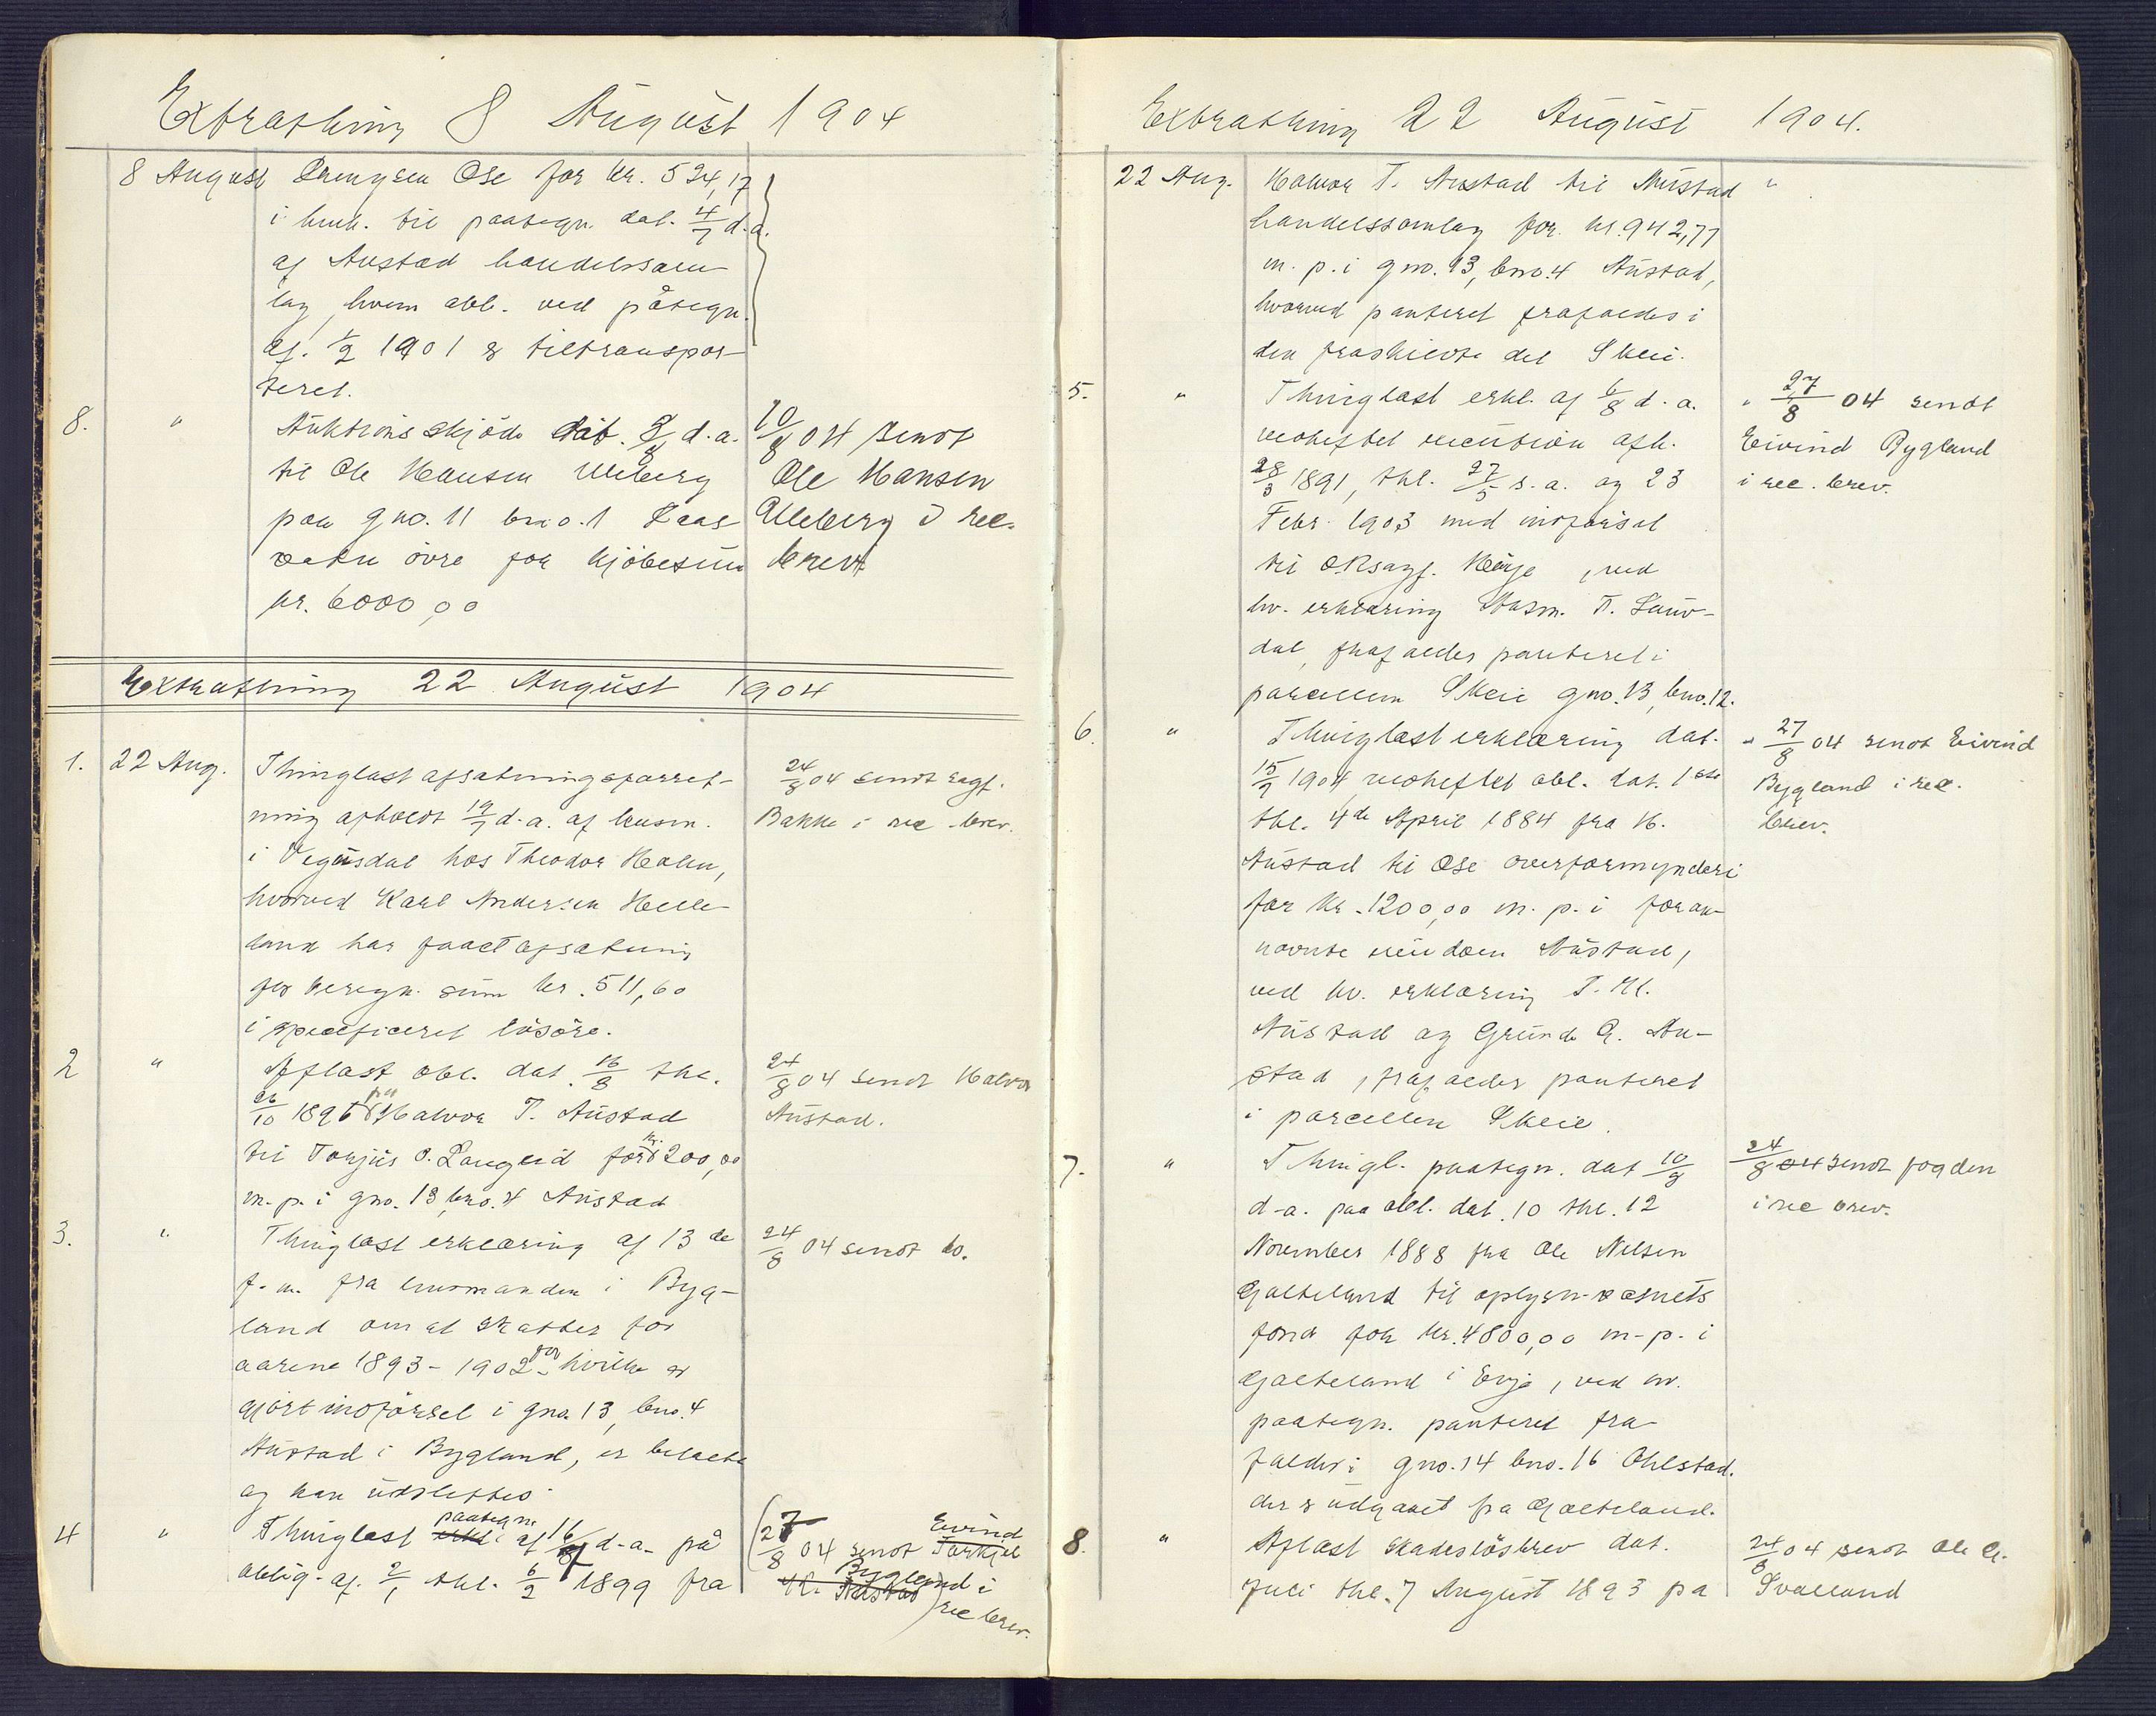 Extrathing 8 August 1904
8 August Drengsen Ose for kr. 524,17
i henh. til paategn. dat. 4/7 d. a.
af Austad handelssam-
lag, hvem obl. ved påtegn.
af 1/2 1901 er tiltranspor-
teret.
8. " Auktionsskjöde dat. 8/8 d. a.
til Ole Hansen Uleberg
paa gno. 11 bno. 1 Kaas-
 övre for kjöbesum
kr. 6000,00
10/8 04 sendt
Ole Hansen
Uleberg i rec.
brev
Extrathing 22 August 1904
1. 22 Aug. Thinglæst afsætningsforret-
ning afholdt 19/7 d. a. af lensm.
i Vegusdal hos Theodor Holen,
hvorved Karl Andersen Helle-
land har faaet afsætning
for beregn. sum kr. 511,60
i specificeret lösöre.
24/8 04 sendt sagf.
Bakke i rec. brev.
2 " Aflæst obl. dat. 16/8 thl.
26/10 1896 fra Halvor T. Austad
til Torjus O. Langeid for kr. 200,00
m. p. i gno. 13, bno. 4 Austad
24/8 04 sendt Halvor
Austad.
3. " Thinglæst erklæring af 13de
f. m. fra lensmanden i Byg-
land om at skatter for
aarene 1893-1902 for hvilke er
gjort indförsel i gno. 13, bno. 4
Austad i Bygland, er betalte
og kan udslettes.
24/8 04 sendt do.
4 " Thinglæst erkl. paategn. af 16/8 d. a. på
oblig. af 2/1 thl. 6/2 1899 fra
(27/8 04 sendt Torkjel Eivind
Kr. Austad Bygland i
rec brev.)
Extrathing 22 August 1904.
22 Aug. Halvor T. Austad til Austad "
handelssamlag for kr. 942,77
m. p. i gno. 13, bno. 4 Austad,
hvorved panteret frafaldes i
den fraskilte del Skeie.
5. " Thinglæst erkl. af 6/8 d. a.
vedheftet execution afh.
28/3 1891, thl. 27/5 s. a. og 23
Febr. 1903 med indförsel
til O.Rsagf. Heuje, ved
hv. erklæring Rasm. T. Lauv-
dal, frafalder panteret i
parcellen Skeie gno. 13, bno. 12.
" 27/8 04 sendt
Eivind Bygland
i rec. brev.
6. " Thinglæst erklæring dat.
15/7 1904 vedheftet obl. dat. 1ste
thl. 4de April 1884 fra H.
Austad til Ose overformynderi
for kr. 1200,00 m. p. i foran-
nævnte eiendom Austad,
ved hv. erklæring T. H.
Austad og Grunde G. Au-
stad, frafalder panteret
i parcellen Skeie.
" 27/8 04 sendt Eivind
Bygland i rec.
brev.
7. " Thingl. paategn. dat 10/8
d. a. paa obl. dat. 10 thl. 12
November 1888 fra Ole Nilsen
Galteland til oplysn.væsnets
fond for kr. 4800,00 m. p. i
Galteland i Evje, ved hv.
paategn. panteret fra-
faldes i gno. 14 bno. 16 Ohlstad.
der er udgaaet fra Galteland.
24/8 04 sendt fogden
i rec brev.
8. " Aflæst skadeslösbrev dat.
Juli thl. 7 August 1893 fra
24/8 04 sendt Ole G.
Svalland